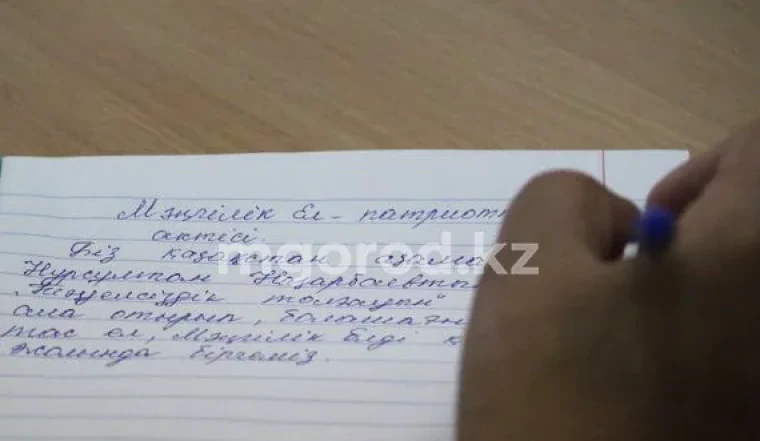 Мәңгілік Ел - патриоти
актісі
Біз қазақстан азама
Нұрсұлтан Назарбаевты
"Тәуелсіздік толғауын"
ала отырып, болашағы
тас ел, Мәңгілік Елді қ
жолында біргеміз.
mgorod.kz